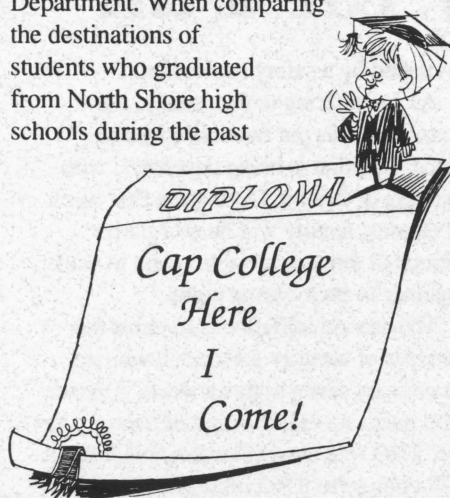 Department. When comparing
the destinations of
students who graduated
from North Shore high
schools during the past
DIPLOMA
Cap College
Here
I
Come!